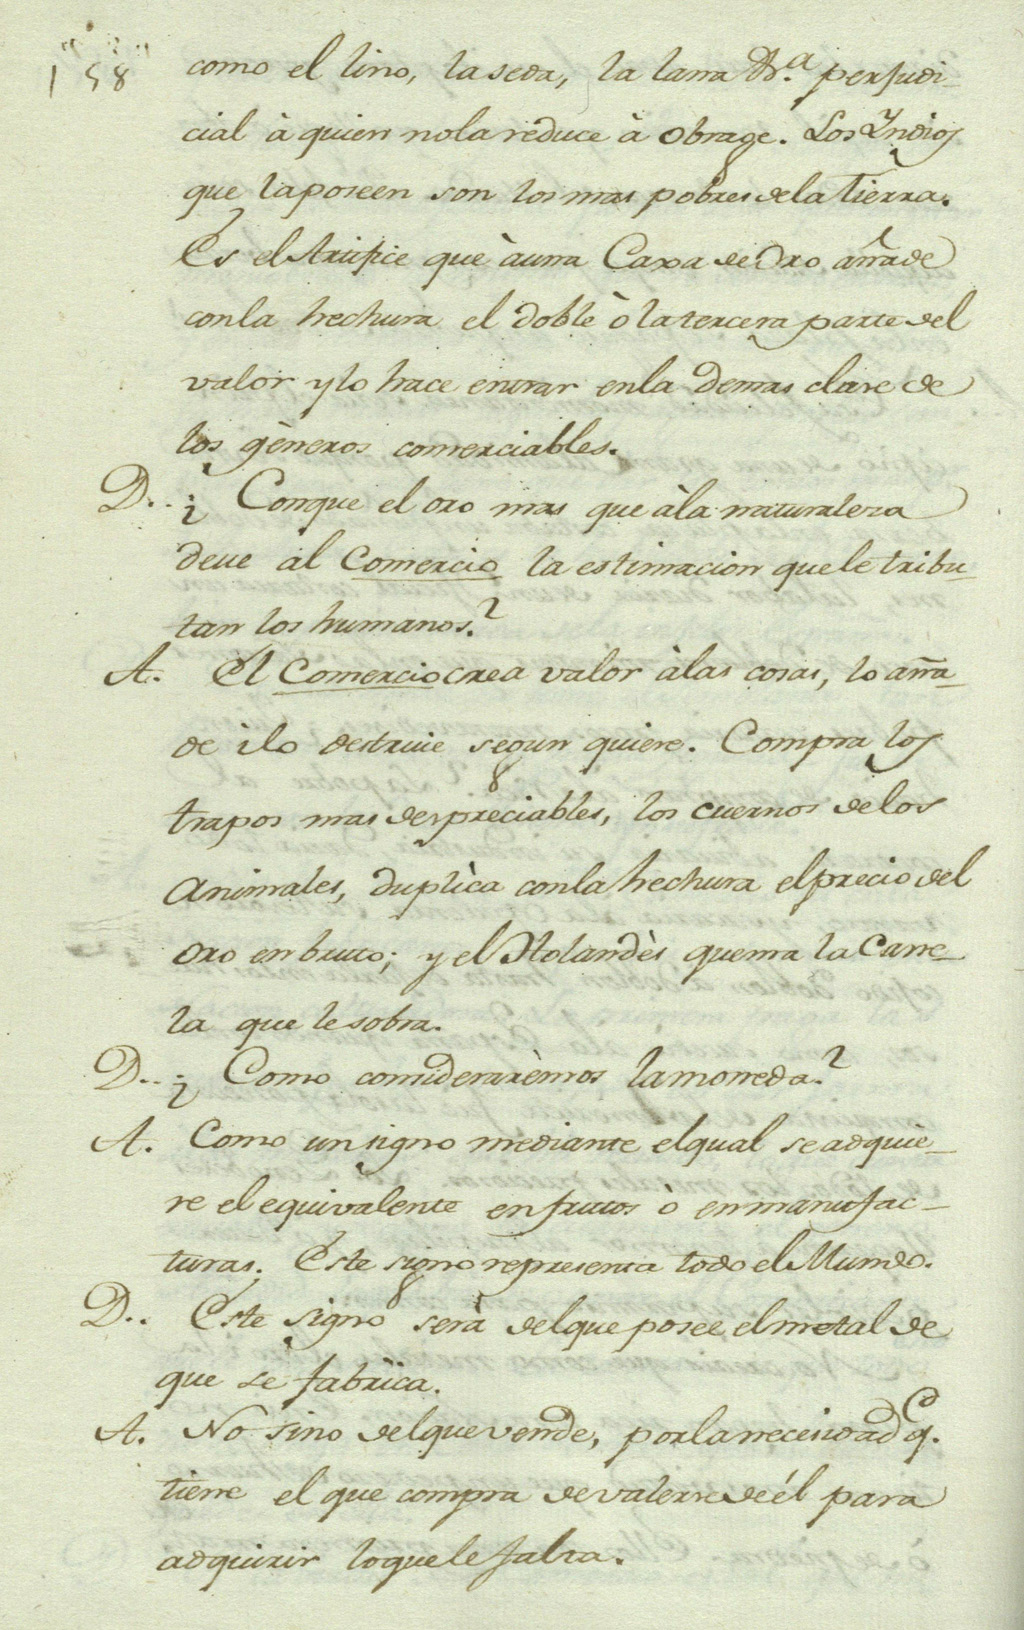 158
como el lino, la seda, la lana &r.ª perjudi-
cial à quien no la reduce à obrage. Los Yndios
que la poseen son los mas pobres de la tierra.
Es el Artifice que à una Caxa de Oro añade
con la hechura el doble ò la tercera parte del
valor y lo hace entrar en la demas clase de
los gèneros comerciables.
D.. ¿ Conque el oro mas que à la naturaleza
deve al Comercio la estimacion que le tribu-
tan los humanos.?
A. El Comercio crea valor à las cosas, lo aña-
de ì lo destruie segun quiere. Compra los
trapos mas despreciables, los cuernos de los
Animales, duplica con la hechura el precio del
oro en bruto; y el Holandès quema la Cane-
la que le sobra.
D.. ¿ Como consideraremos la moneda.?
A. Como un signo mediante el qual se adquie-
re el equivalente en frutos ò en manufac-
turas. Este signo representa todo el Mundo.
D.. Este signo serà del que posee el metal de
que se fabrica.
A. No sino del que vende, por la necesidad q.
tiene el que compra de valerse de él para
adquirir lo que le falta.